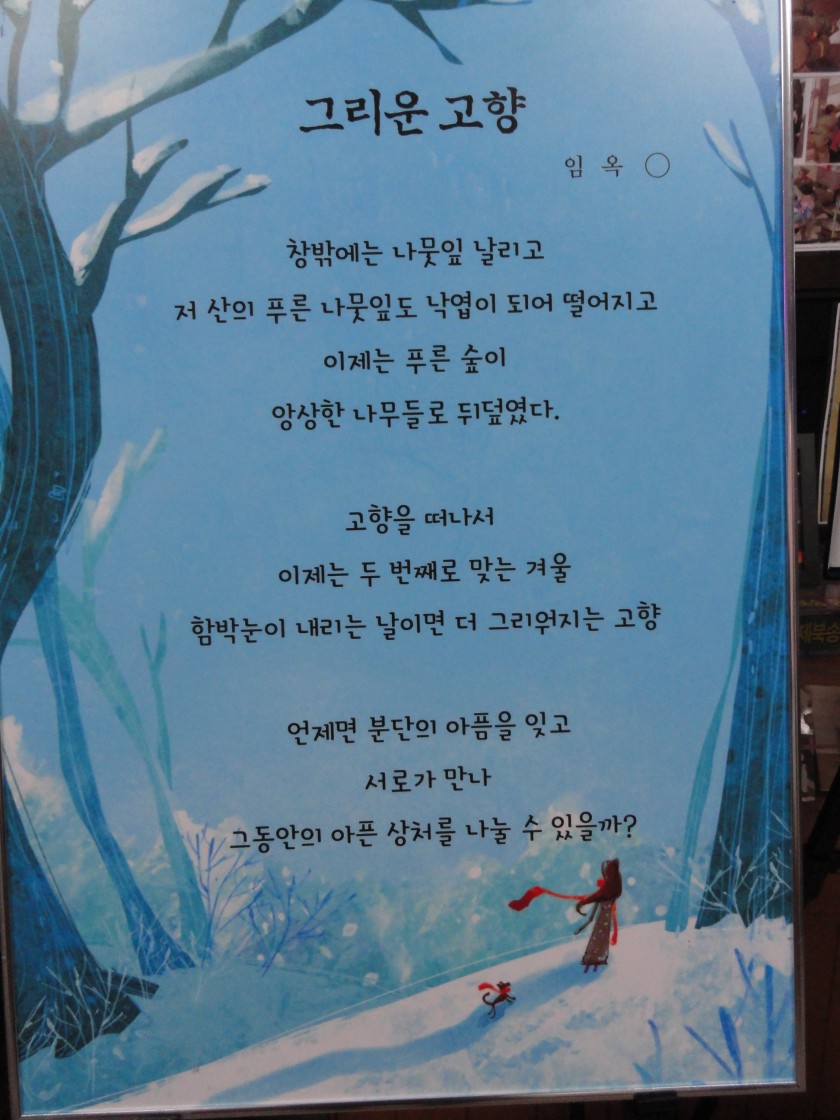 그리운 고향
임 옥 ○
창밖에는 나뭇잎 날리고
저 산의 푸른 나뭇잎도 낙엽이 되어 떨어지고
이제는 푸른 숲이
앙상한 나무들로 뒤덮였다.
고향을 떠나서
이제는 두 번째로 맞는 겨울
함박눈이 내리는 날이면 더 그리워지는 고향
언제면 분단의 아픔을 잊고
서로가 만나
그동안의 아픈 상처를 나눌 수 있을까?